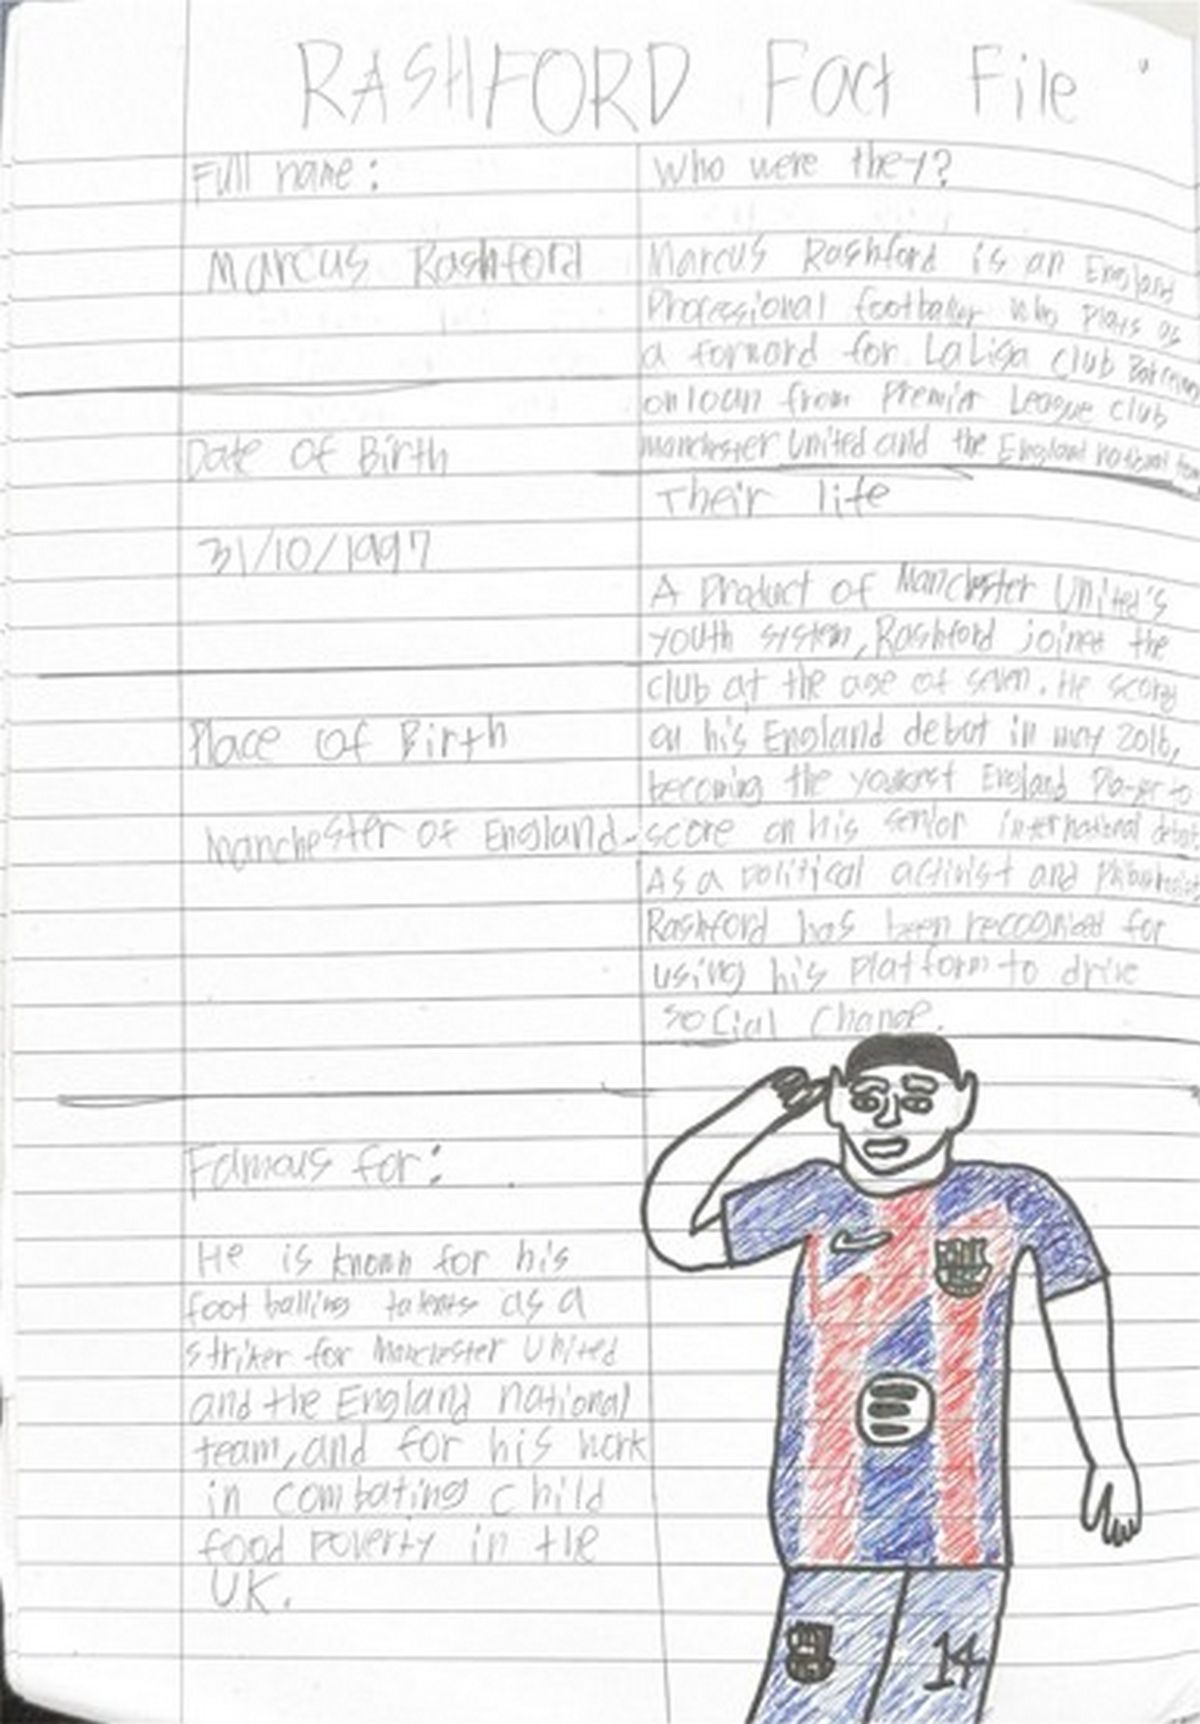 RASHFORD Fact File
Full name:
Marcus Rashford
Date of Birth
31/10/1997
Place of Birth
Manchester of England
Famous for:
He is known for his
foot balling talents as a
striker for Manchester United
and the England national
team, and for his work
in combating child
food poverty in the
UK.
Who were they?
Marcus Rashford is an England
Professional footballer who plays as
a forward for LaLiga club
on loan from Premier League club
manchester United and the England national team
Their life
A Product of Manchester United's
youth system, Rashford joined the
club at the age of seven. He
on his England debut in may 2016,
becoming the youngest England Player to
score on his senior international debut.
As a political activist and
Rashford has been recognised for
using his platform to drive
social change.
14